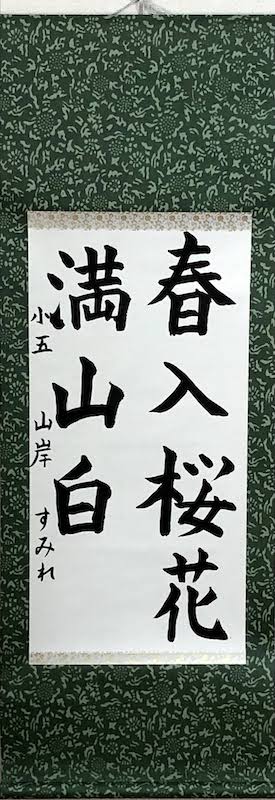 春入桜花
満山白
小五 山岸 すみれ